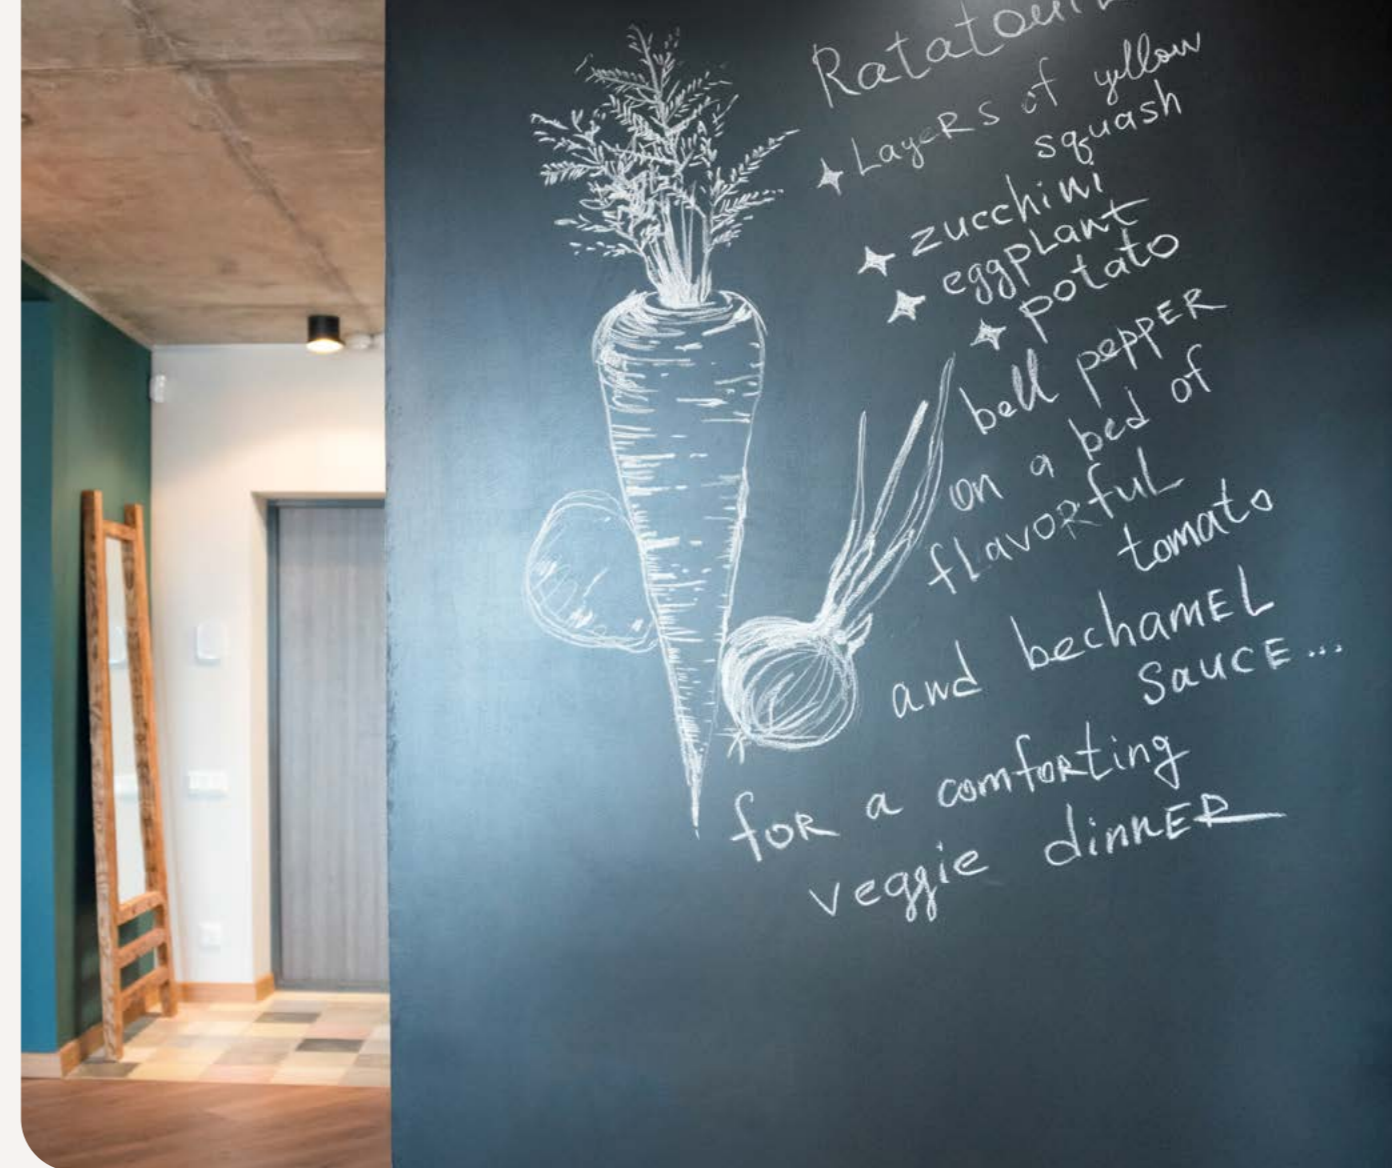 Ratatoui
Layers of yellow
squash
zucchini
eggplant
potato
bell pepper
on a bed of
flavorful
tomato
and bechamel
sauce...
for a comforting
veggie dinner